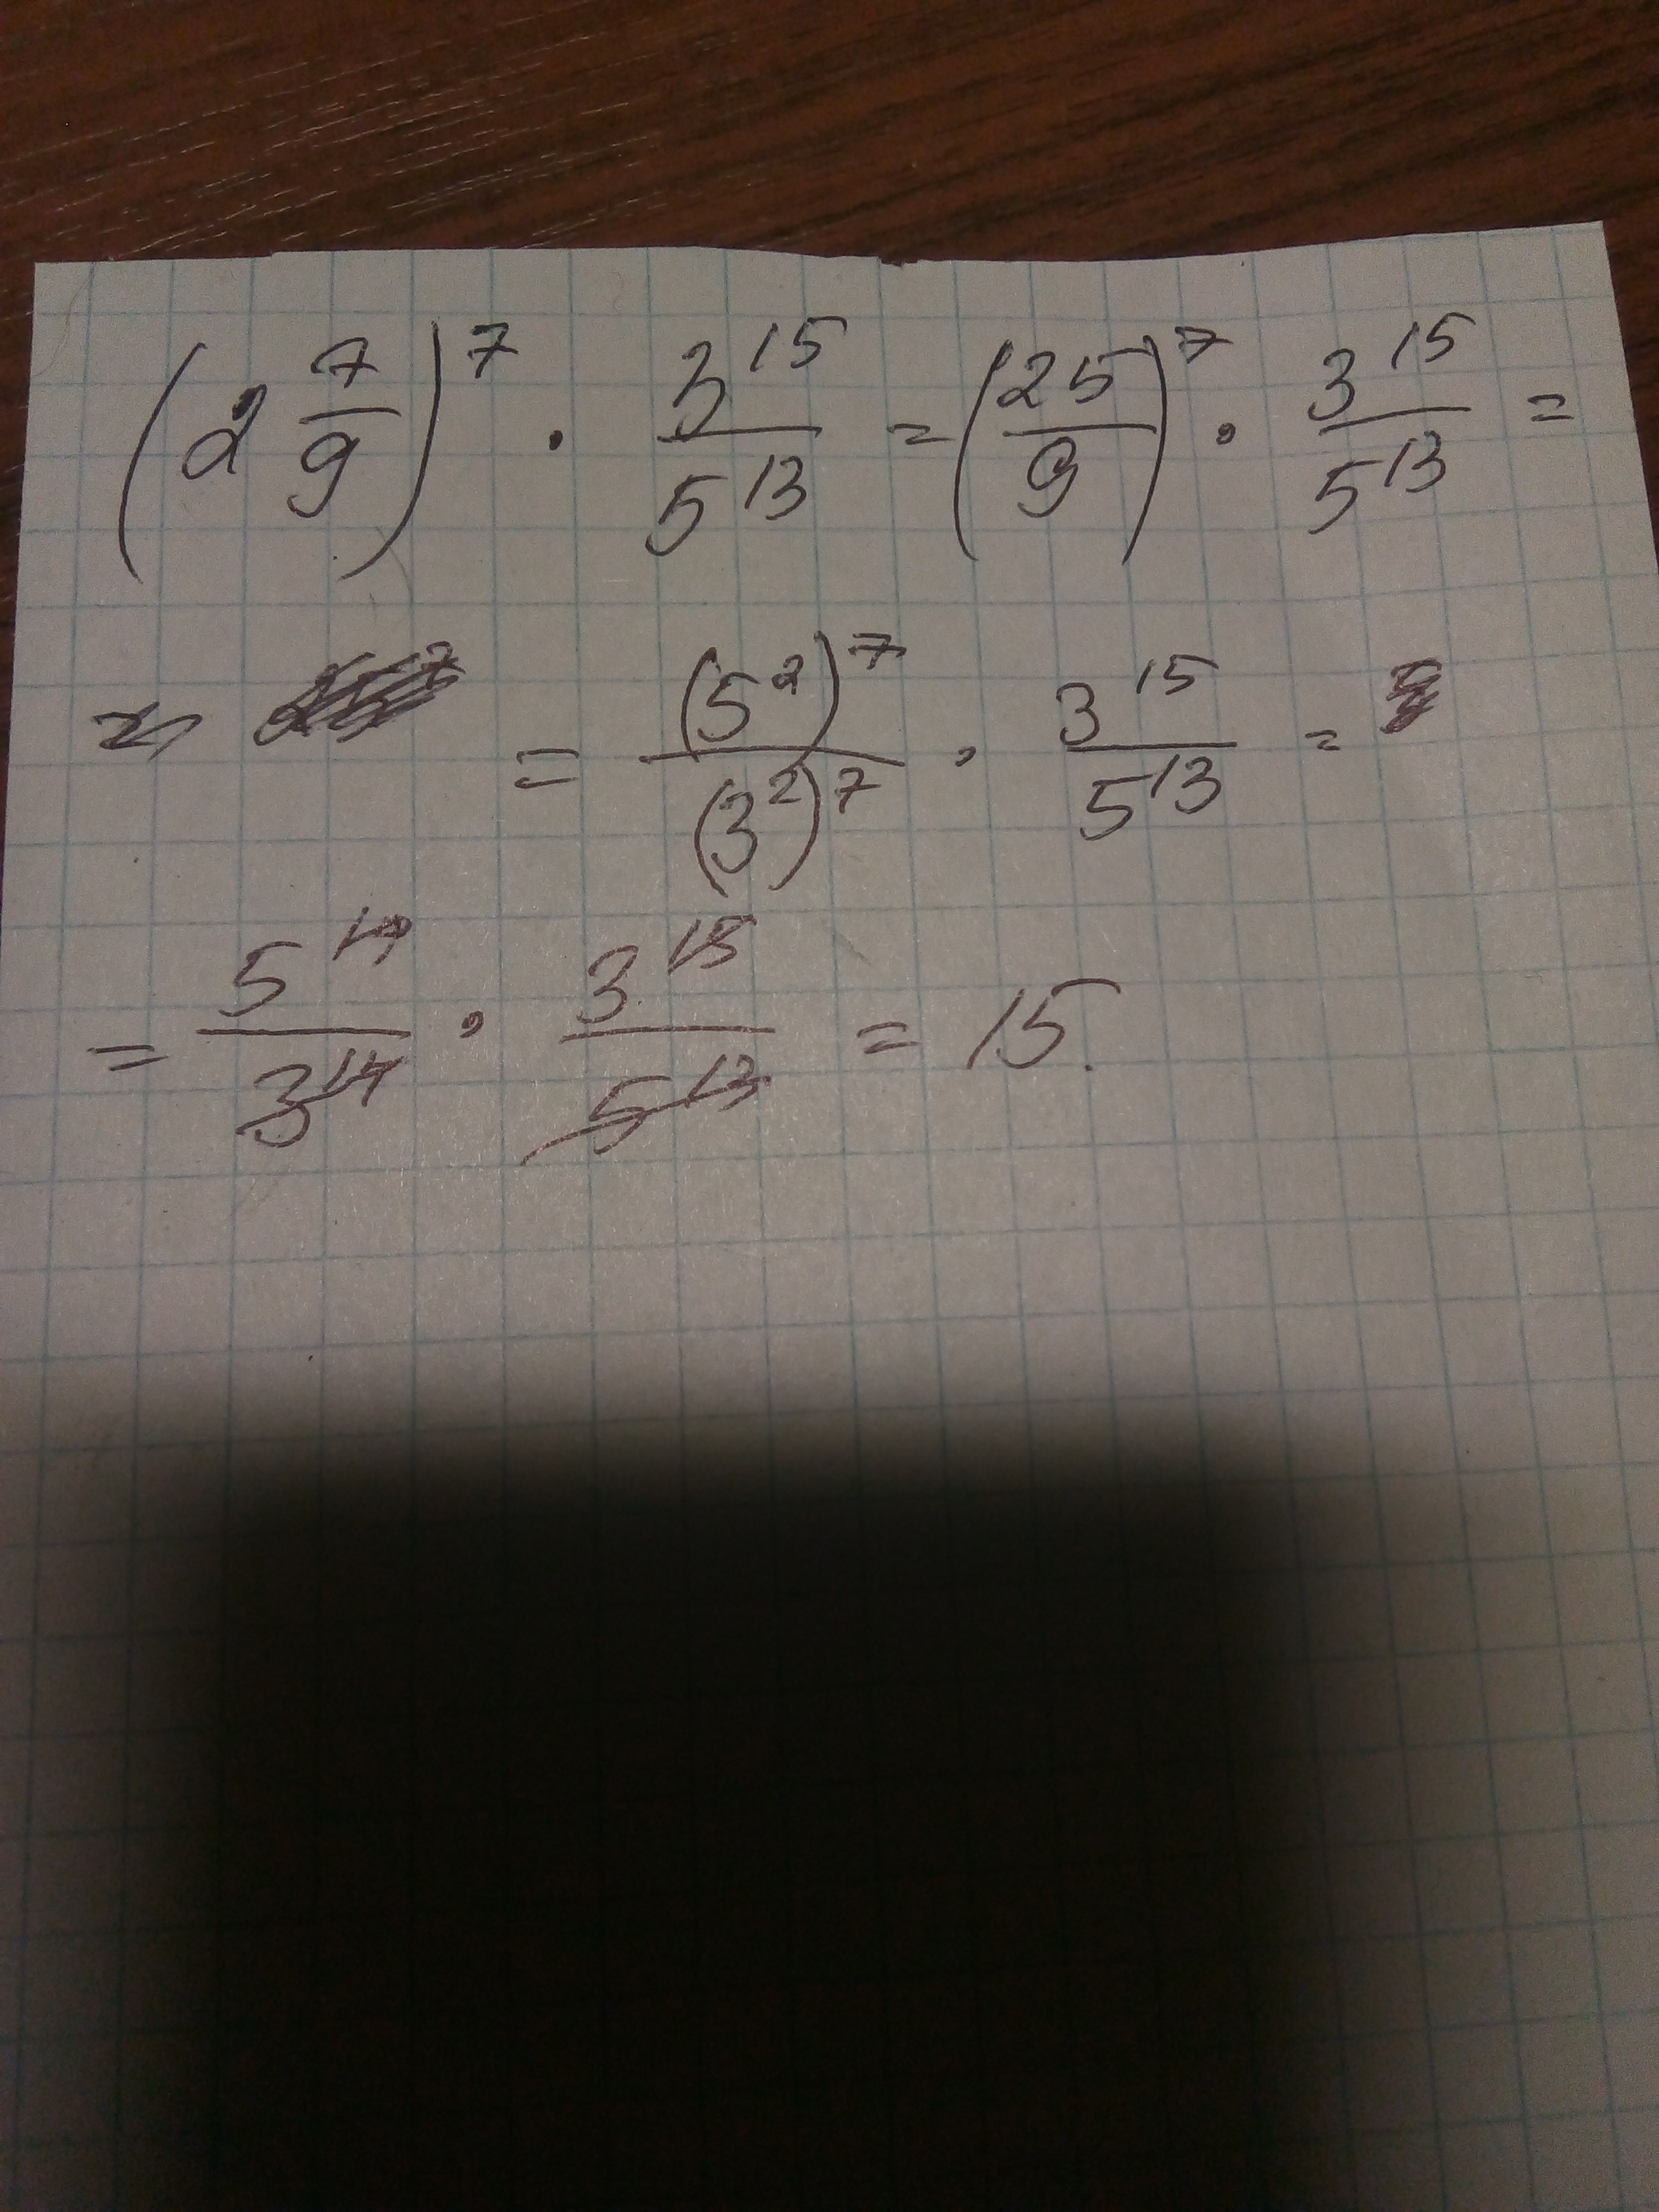 (2 7/9)^7 · 3^15/5^13 = (25/9)^7 · 3^15/5^13 =
= = (5^2)^7/(3^2)^7 · 3^15/5^13 =
= 5^14/3^14 · 3^15/5^13 = 15.